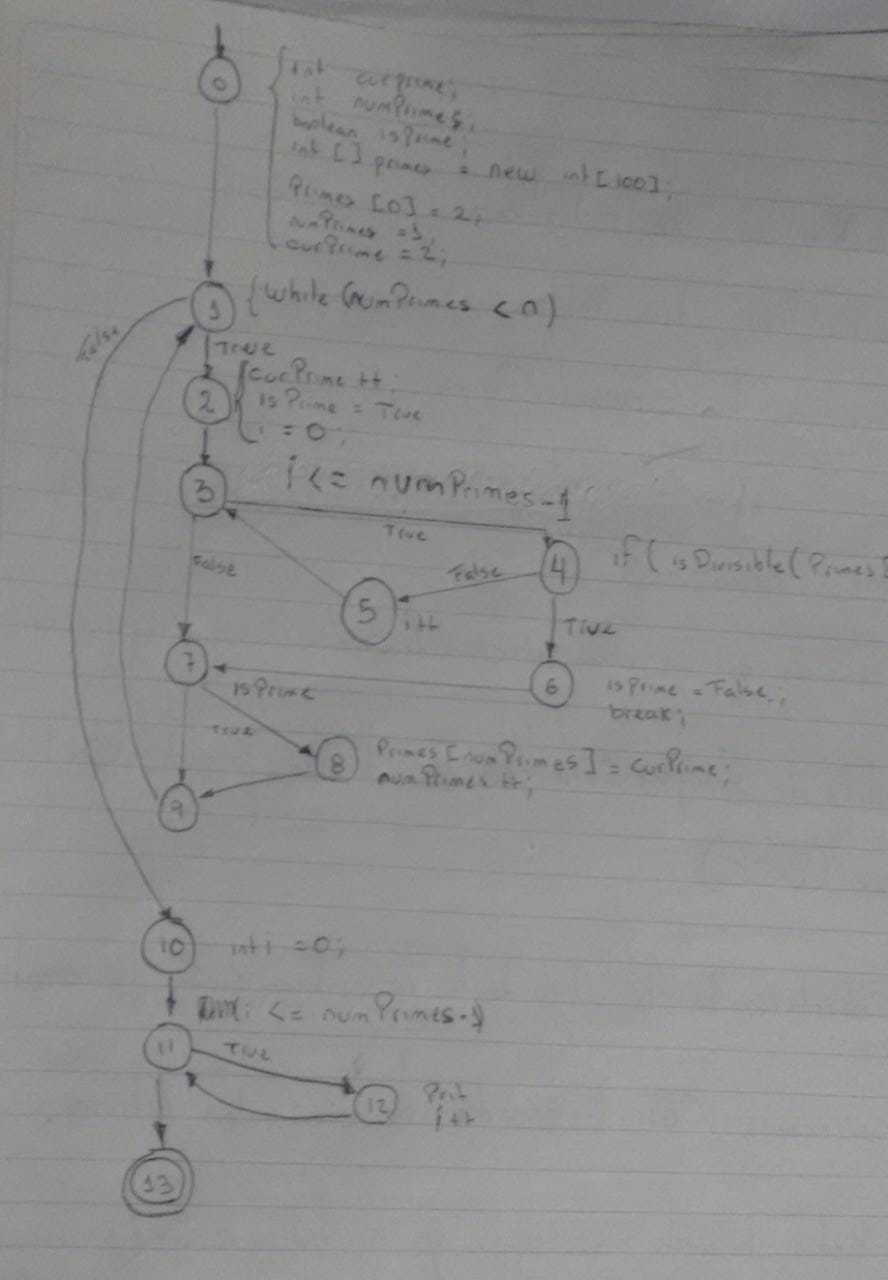 0
int curprime;
int numPrimes;
boolean isPrime;
int [ ] primes = new int [100];
Primes [0] = 2;
numPrimes = 1;
curPrime = 2;
1
while (numPrimes < n)
False
True
2
curPrime ++;
isPrime = True
i = 0;
3
i <= numPrimes - 1
True
4
if ( isDivisible ( Primes [
False
False
5
i++
True
7
6
isPrime = False;
break;
isPrime
True
8
Primes [numPrimes] = curPrime;
numPrimes ++;
9
10
int i = 0;
i <= numPrimes - 1
11
True
12
Prit
i++
13